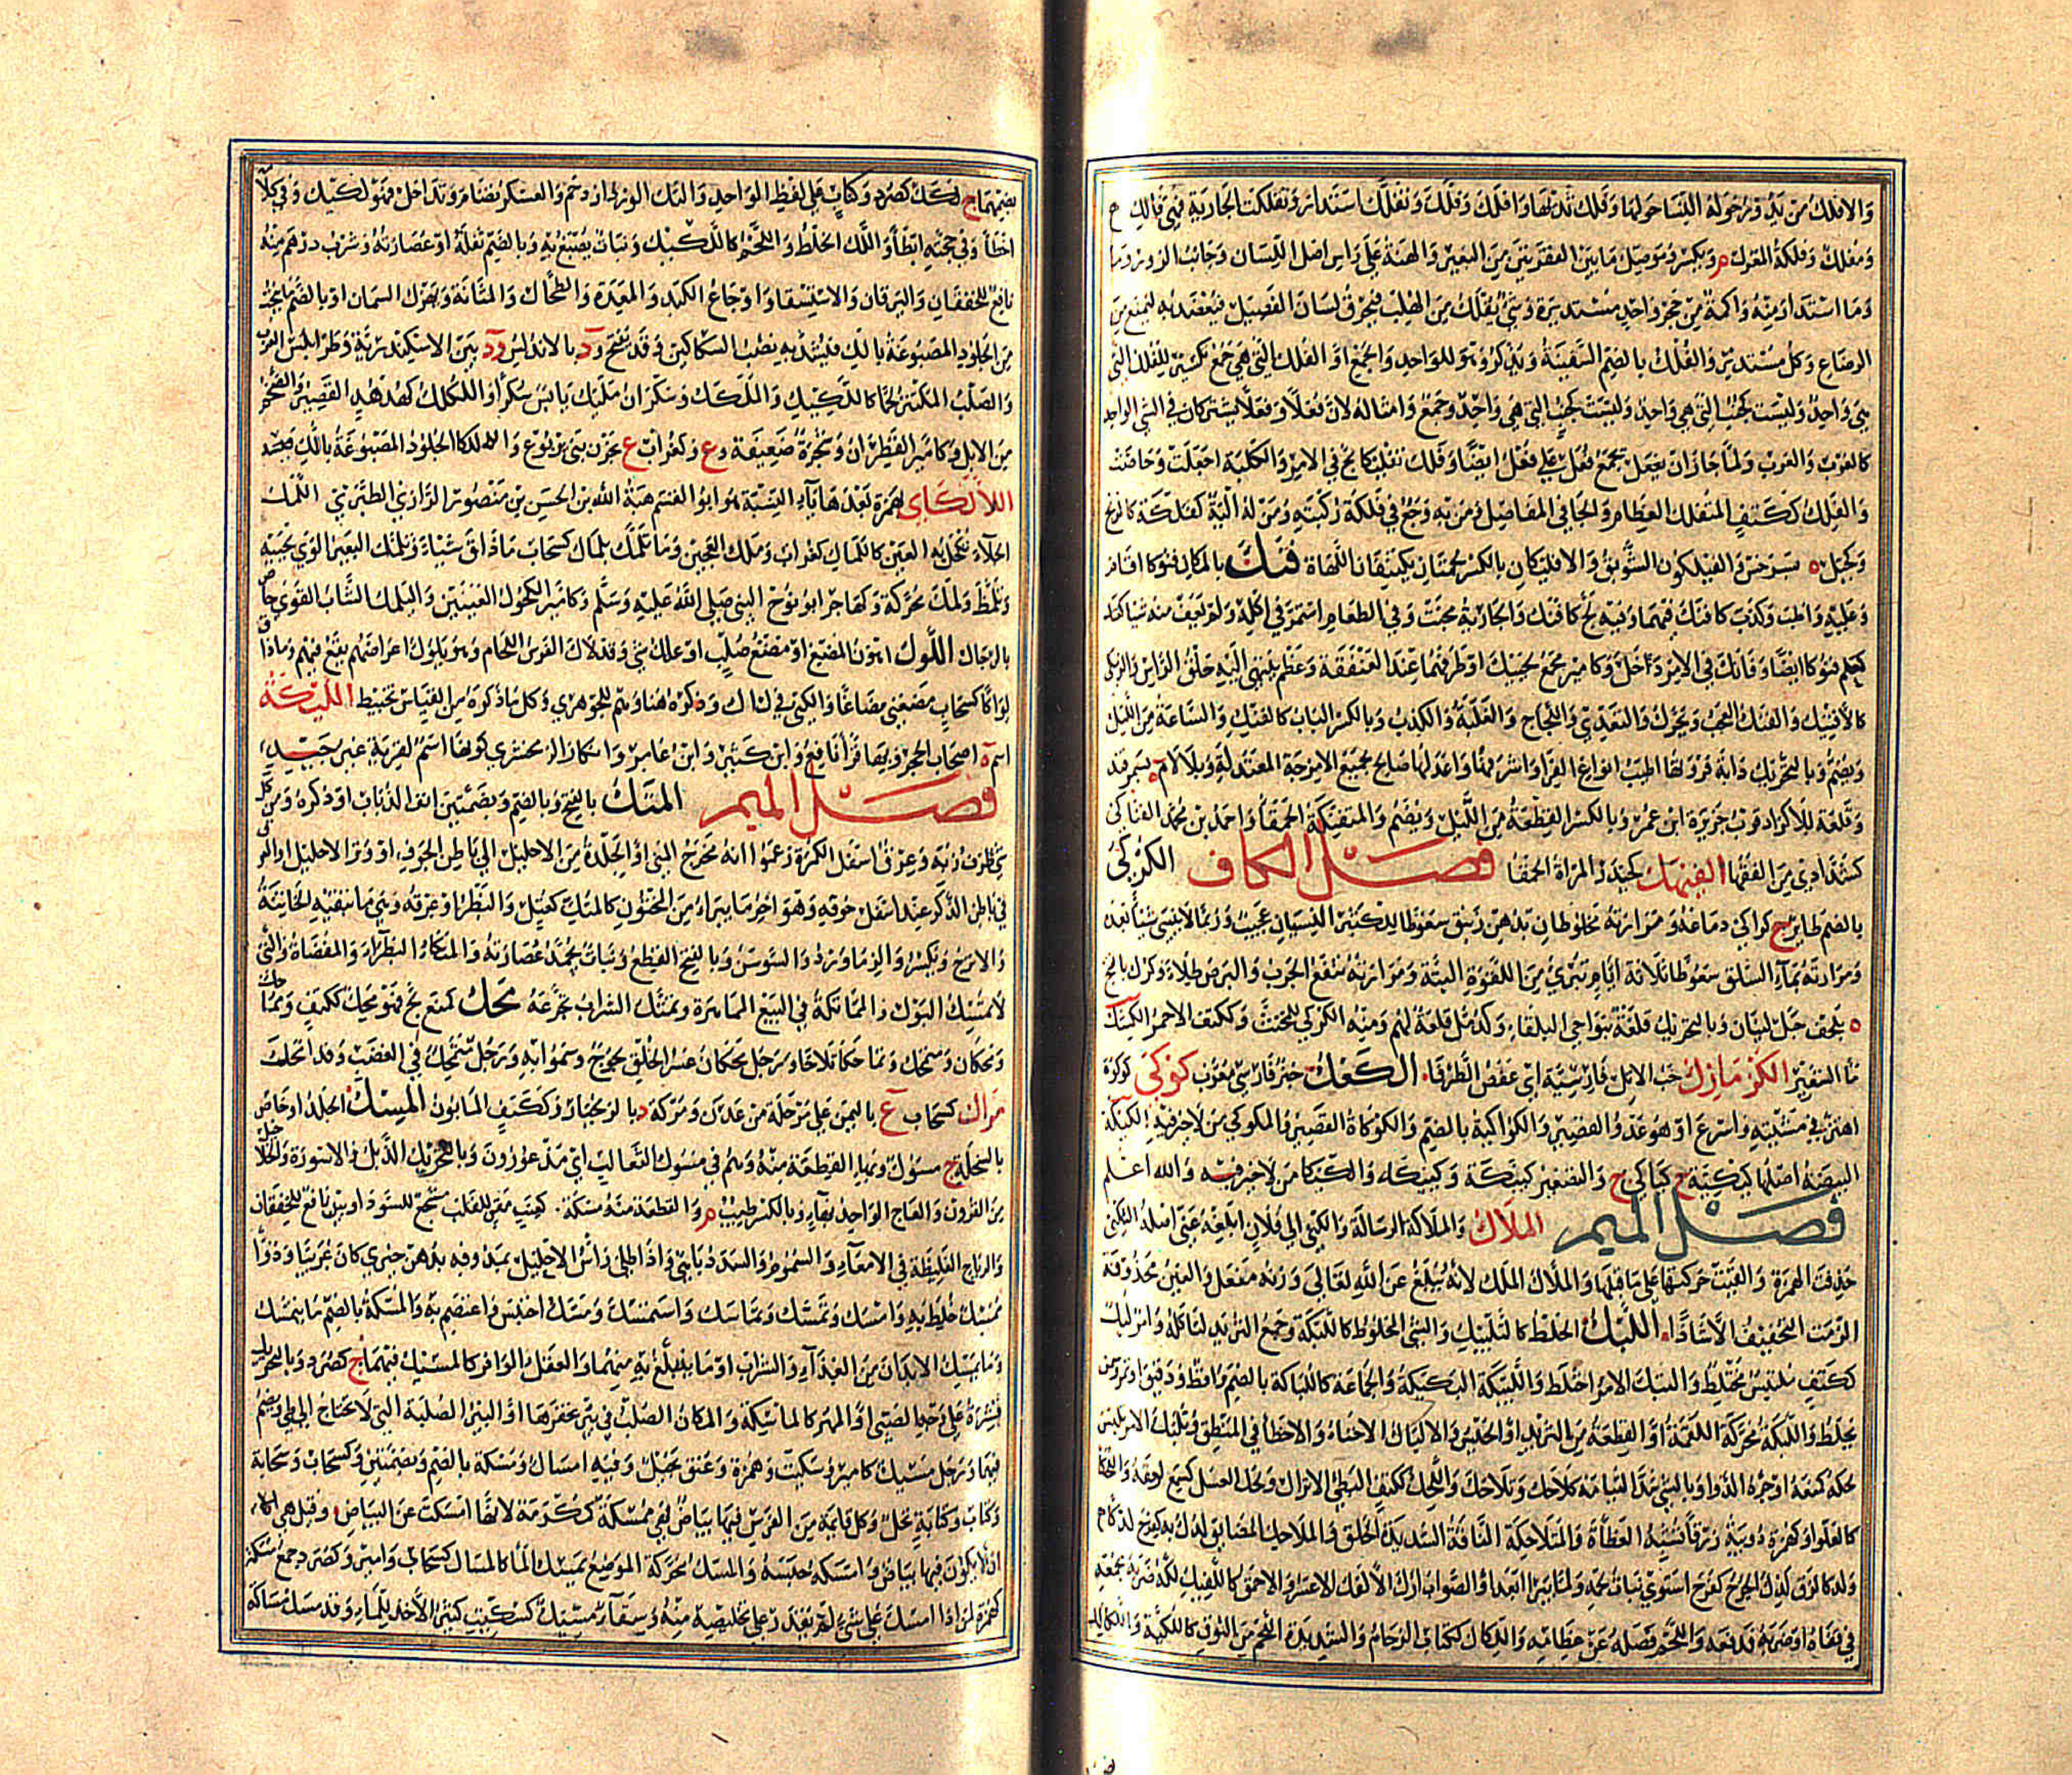 والافلك من يدور حوله التسا حولها وفلك ثديها وافلك وفلك وتفلك استدار وتفلكت الجارية فهي فالك
ومفلك وفلكة المغزل م ويكسر وموصل ما بين الفقرتين من البعير والهنة على راس اصل اللسان وجانب الزور وما
وما استدار منه واكمة من حجر واحد مستديرة وشئ يفلك من الهلب فيخرق لسان الفصيل فيعقد به ليمنع من
الرضاع وكل مستدير والفلك بالضم السفينة ويذكر وهو للواحد والجمع او الفلك التي هي جمع تكسير للفلك التي
هي واحد وليست كجنب التي هي واحد وجمع وامثاله لان فعلا وفعلا يشتركان في الشئ الواحد
كالعرب والعرب ولما جاز ان يجمع فعل على فعل ايضا وفلك تفليكا لج في الامر والكلبة اجعلت وحاضت
والفلك ككتف المتفلك العظام والجافي المفاصل ومن به وجع في فلكة ركبته ومن له الية كفلكة كالزنج
وكجبل ة بسرخس والفيلكون الشوبق والافليكان بالكسر لحمتان تكتنفان اللهاة فنك بالمكان فنوكا اقام
وعليه واظب وكذب كافنك فيهما وفيه لج كافنك والجارية مجنت وفي الطعام استمر في اكله ولم يعف منه شيا كفنك
كعلم فنوكا ايضا وفانك في الامر دخل وكامير مجمع لحييك او طرفهما عند العنفقة وعظم ينتهي اليه حلق الراس والزمكي
كالافنيك والفنك العجب ويحرك والتعدي واللجاج والغلبة والكذب وبالكسر الباب كالفنك والساعة من الليل
ويضم وبالتحريك دابة فروتها اطيب انواع الفرا واشرفها واعدلها صالح لجميع الامزجة المعتدلة وبلا لام ة بسمرقند
وقلعة للاكراد قرب جزيرة ابن عمر وبالكسر القطعة من الليل ويضم والمتفنكة الحمقا واحمد بن محمد الفناكي
كشدادي من الفقها الفيهك كحيدر المراة الحمقا فصل الكاف الكركي
بالضم طاير ج كراكي دماغه ومرارته مخلوطان بدهن زنبق سعوطا لكثير النسيان عجيب وربما لا ينسى شيا بعده
ومرارته بماء السلق سعوطا ثلاثة ايام تبرئ من اللقوة البتة ومرارته تنفع الجرب والبرص طلاء وكرك بالفتح
ة بلحف جبل لبنان وبالتحريك قلعة بنواحي البلقاء وكدمل قلعة لهم ومنه الكركي للمخنث وككتف الاحمر
الكزمازك حب الاثل فارسية اي عفص الطرفا الكعك خبز فارسي معرب كوكى كوكوة
اهتز في مشيته واسرع او هو عدو القصير والكواكية بالضم والكوكاة القصير والمكوكي من لا خير فيه الكيكة
البيضة اصلها كيكية ج كياكي ج والتصغير كييكة وكييكية والكيكا من لا خير فيه والله اعلم
فصل الميم الملاك والملاكة الرسالة والكني الى فلان ابلغه عني اصله الئكني
حذفت الهمزة والقيت حركتها على ما قبلها والملاك الملك لانه يبلغ عن الله تعالى وزنه مفعل والعين محذوفة
الزمت التخفيف الا شاذا اللبك الخلط كالتلبيك والشئ المخلوط كاللبكة وجمع الثريد لتاكله وامر لبك
ككتف ملتبس مختلط والتبك الامر اختلط واللبيكة البكيكة والجماعة كاللباكة بالضم واقط ودقيق او تمر وسمن
يخلط واللبكة محركة اللقمة او القطعة من الثريد او الحيس والالباك الاخفاء والاخطا في المنطق وتلبك الامر تلبس
لحكه كمنعه اوجره الدوا وبالشئ شد التيامه كلاحك وتلاحك واللحك ككتف البطئ الانزال ولحك العسل كسمع لعقه
كالغلوا وكهمزة دويبة زرقا تشبه العظاءة والمتلاحكة الناقة الشديدة الخلق والملاحك المضايق لدك به كفرح
ولدكا لزق لذك الجرح كفرح استوى نبات لحمه ولما يبرا بعد والصواب ارك الالفك الاعسر والاحمق كاللفيك لكه ضربه بجمعه
في قفاه او ضربه فدفعه واللحم فصله عن عظامه واللكاك ككتاب الزحام والشديدة اللحم من النوق كاللكية واللكالك
بضمهما ج لكك كصرد وكتاب على لفظ الواحد والتك الورد ازدحم والعسكر تضام وتداخل فهو لكيك وفي كلامه
اخطا وفي حجته ابطا واللك الخلط واللحم كاللكيك ونبات يصبغ به وبالضم ثفله او عصارته وشرب درهم منه
نافع للخفقان واليرقان والاستسقا واوجاع الكبد والمعدة والطحال والمثانة ويهزل السمان او بالضم ما ينحت
من الجلود المصبوغة باللك فيشد به نصب السكاكين وقد يفتح ود بالاندلس ود بين الاسكندرية وطرابلس الغرب
والصلب المكتنز لحما كاللكيك والملكك وسكران ملتك يابس سكرا واللكلك كهدهد القصير والضخم
من الابل وكامير القطران وشجرة ضعيفة وع وكغراب ع بحزن بني يربوع واللكا الجلود المصبوغة باللك
اللالكاى بهمزة بعدها ياء النسبة هو ابو القسم هبة الله بن الحسين بن منصور الرازي الطبري اللمك
الجلاء تكحل به العين كاللماك كغراب وملك العجين وما تلمك بلماك كسحاب ما ذاق شياء وتلمك البعير لوى لحييه
وتلمظ ولمك محركة وكهاجر ابو نوح النبي صلى الله عليه وسلم وكامير المكحول العينين واليلمك الشاب القوي خاص
بالرجال اللوك اهون المضغ او مضغ صلب او علك شئ وقد لاك الفرس اللجام وهو يلوك اعراضهم يقع فيهم وما ذاق
لواكا كسحاب مضغني مضاغا والكني في لاك وذكره هنا وهم للجوهري وكل ما ذكره من القياس تخبيط الليكة
اسم ة اصحاب الحجر وبها قرا نافع وابن كثير وابن عامر وانكار الزمخشري كونها اسم لقرية غير جيد
فصل الميم المتك بالفتح وبالضم وبضمتين انف الذباب او ذكره ومن كل
شئ طرف زبه وعرق اسفل الكمرة زعموا انه مخرج المني او الجلدة من الاحليل الى باطن الحوق او وترا الاحليل او العرق
في باطن الذكر عند اسفل حوقه وهو اخر ما يبراء من المختون كالمتك كعتل والبظر او عرقه وهي ما تبقيه الخاتنة
والاترج ويكسر والزماورد والسوسن وبالفتح القطع ونبات تجمد عصارته والمتكاء البظراء والمفضاة والتي
لا تمسك البول والمماتكة في البيع المماهرة وتمتك الشراب تجرعه محك كمنع لج فهو محك ككتف ومماحك
ومحكان ومحك وتماحكا تلاحا ورجل محكان عسر الخلق لجوج وسموا به ورجل ممتحك في الغضب وقد امحك
مراك كسحاب ع باليمن على مرحلة من عدن ومركة د بالزنجبار وككتف المابون المسك الجلد او خاص
بالسخلة ج مسوك وبهاء القطعة منه وهم في مسوك الثعالب اي مذعورون وبالتحريك الذبل والاسورة والخلاخيل
من القرون والعاج الواحد بهاء وبالكسر طيب م والقطعة منه مسكة كعنب مقو للقلب مشجع للسوداويين نافع للخفقان
والرياح الغليظة في الامعاء والسموم والسدد باهي واذا طلي راس الاحليل بمدوفه بدهن خيري كان غريبا ودواء
ممسك خلط به وامسك وتمسك وتماسك واستمسك ومسك احتبس واعتصم به والمسكة بالضم ما يتمسك
وما يمسك الابدان من الغذاء والشراب او ما يتبلغ به منهما والعقل الوافر كالمسيك فيهما ج كصرد وبالتحريك
قشرة على وجه الصبي او المهر كالماسكة والمكان الصلب في بئر تحفرها او البئر الصلبة التي لا تحتاج الى طي ويضم
فيهما ورجل مسيك كامير وسكيت وهمزة وعنق بخيل وفيه امساك ومسكة بالضم وبضمتين وكسحاب وسحابة
وكتاب وكتابة بخل وكل قايمة من الفرس فيها بياض فهي ممسكة ككرمة لانها امسكت على البياض وقيل هي
ان لا يكون فيها بياض وامسكه حبسه والمسك محركة الموضع يمسك الماء كالمساك كسحاب وامير وكصرد جمع مسكة
كهمزة لمن اذا امسك على شئ لم يقدر على تخليصه منه وسقاء مسيك كسكيت كثير الاخذ للماء وقد مسك مساكة